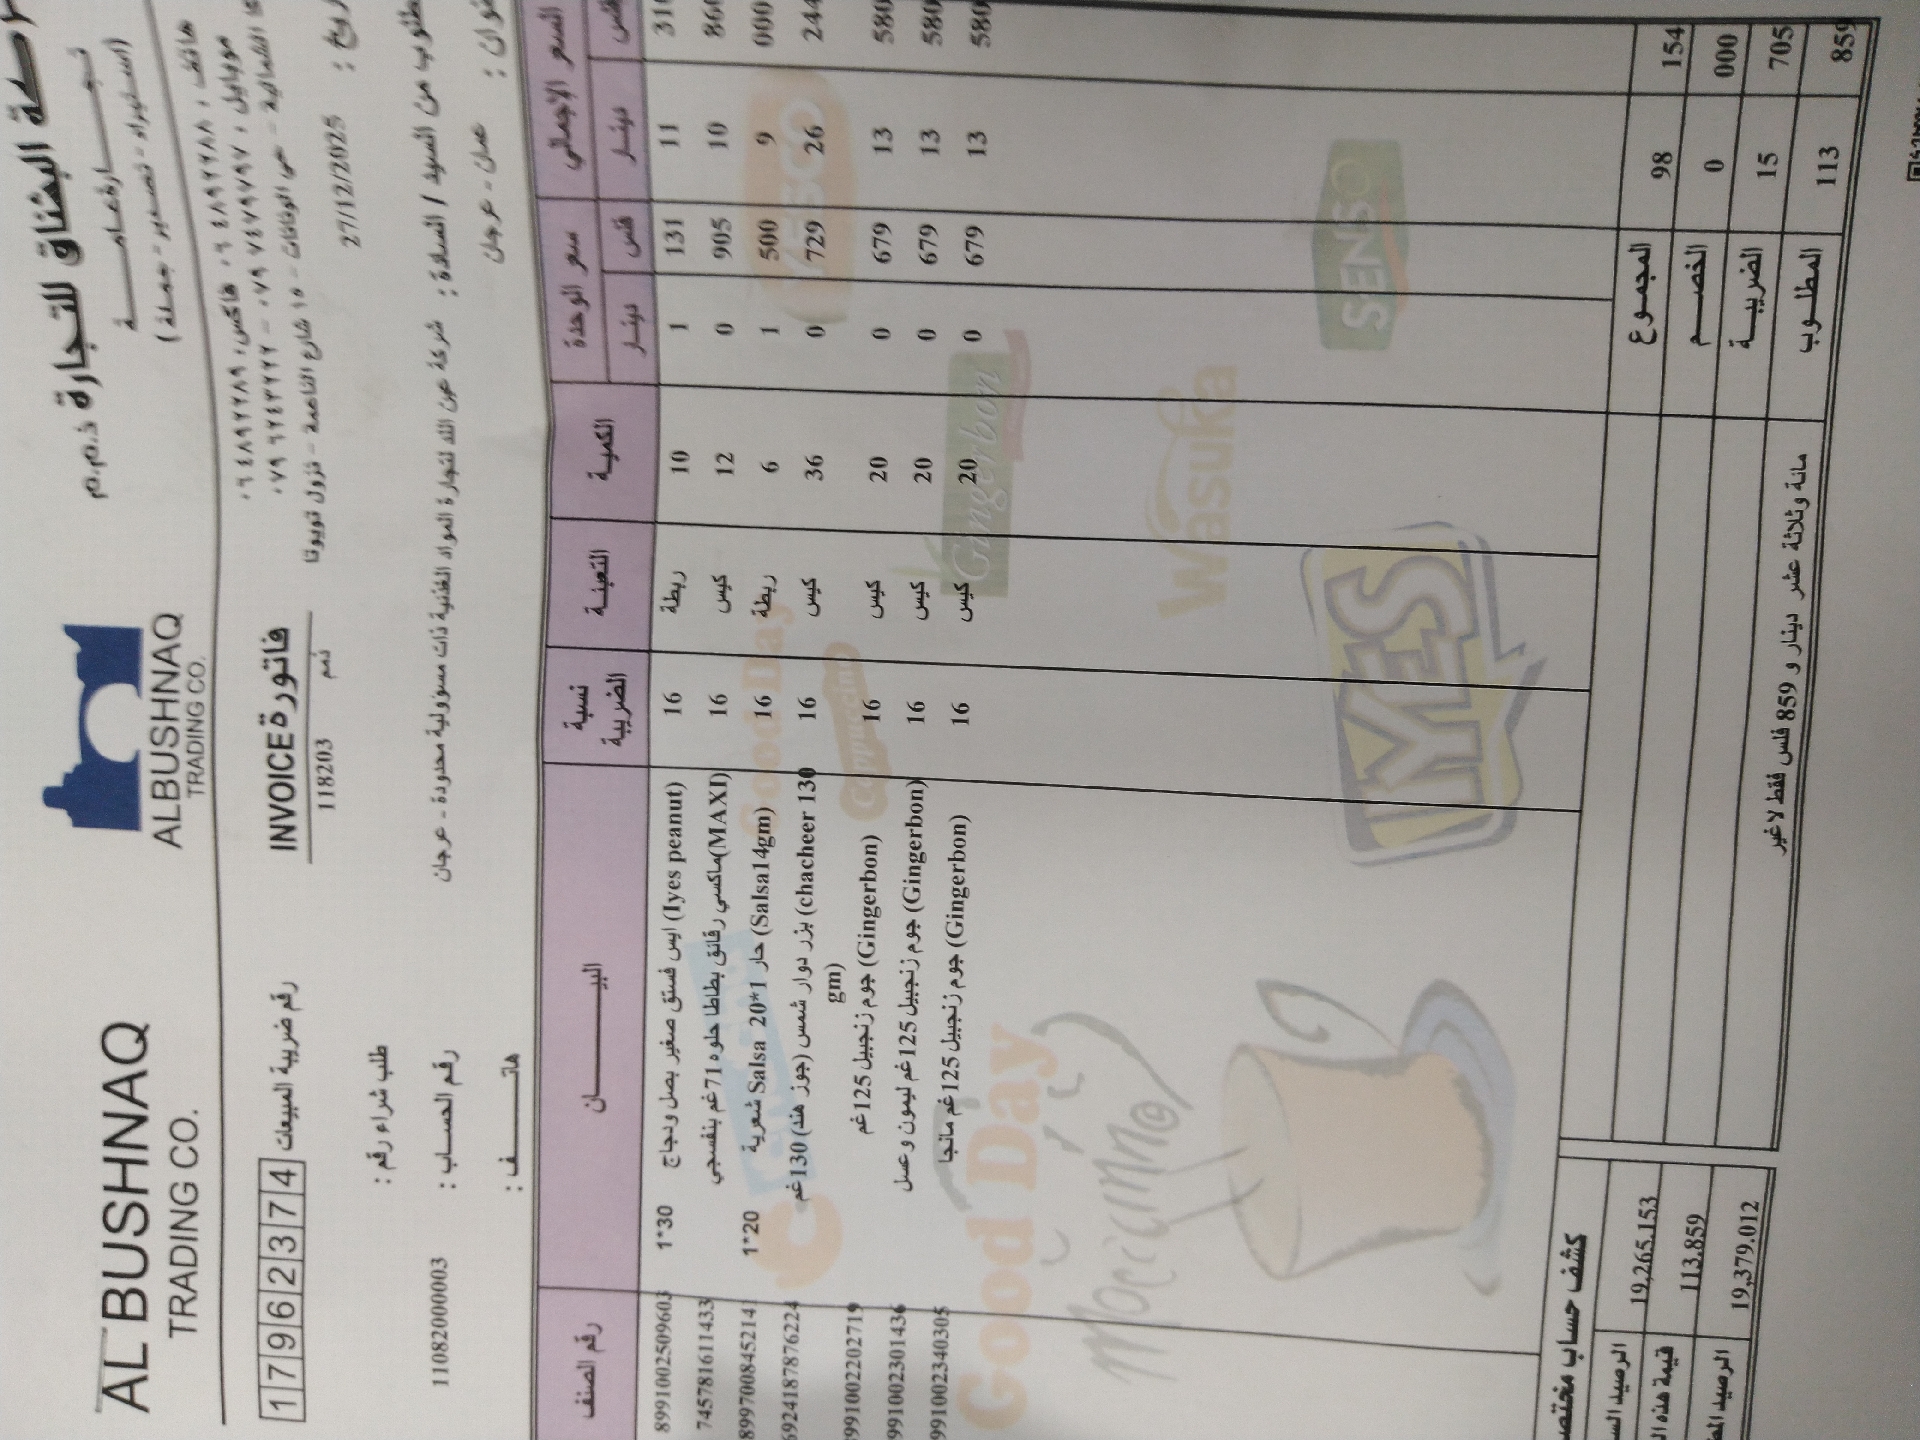 AL BUSHNAQ
TRADING CO.
ALBUSHNAQ
TRADING CO.
البشناق للتجارة ذ.م.م
(استيراد - تصدير - جملة)
هاتف : ٠٦ ٤٨٩٢٢٨٨ فاكس: ٠٦ ٤٨٩٢٢٨٩
شارع القاعصة - نزول تويوتا
1 7 9 6 2 3 7 4 رقم ضريبة المبيعات
فاتورة INVOICE
118203 ذمم
27/12/2025
طلب شراء رقم :
مطلوب من السيد / السادة : شركة عين الله لتجارة المواد الغذائية ذات مسؤولية محدودة - عرجان
رقم الحساب : 1108200003
عمان - عرجان
هاتف :
رقم الصنف البيان نسبة الضريبة التعبئة الكمية سعر الوحدة السعر الإجمالي
دينار فلس دينار فلس
8991002509603 1*30 ايس فستق صغير بصل ودجاج (Iyes peanut) 16 ربطة 10 1 131 11 310
745781611433 ماكسي رقائق بطاطا حلوه 71غم بنفسجي (MAXI) 16 كيس 12 0 905 10 860
899700845214 1*20 شعرية Salsa 20*1 حار (Salsa14gm) 16 ربطة 6 1 500 9 000
692418787622 بزر دوار شمس (جوز هند) 130غم (chacheer 130 gm) 16 كيس 36 0 729 26 244
991002202719 جوم زنجبيل 125غم (Gingerbon) 16 كيس 20 0 679 13 580
991002301436 جوم زنجبيل 125غم ليمون و عسل (Gingerbon) 16 كيس 20 0 679 13 580
991002340305 جوم زنجبيل 125غم مانجا (Gingerbon) 16 كيس 20 0 679 13 580
KESCO
Good Day
Cappuccino
Gingerbon
Wasuka
SENSO
IYES
Good Day
Moccacinno
المجموع 98 154
الخصم 0 000
الضريبة 15 705
المطلوب 113 859
مائة وثلاثة عشر دينار و 859 فلس فقط لاغير
كشف حساب مختصر
19,265.153
قيمة هذه 113.859
الرصيد 19,379.012